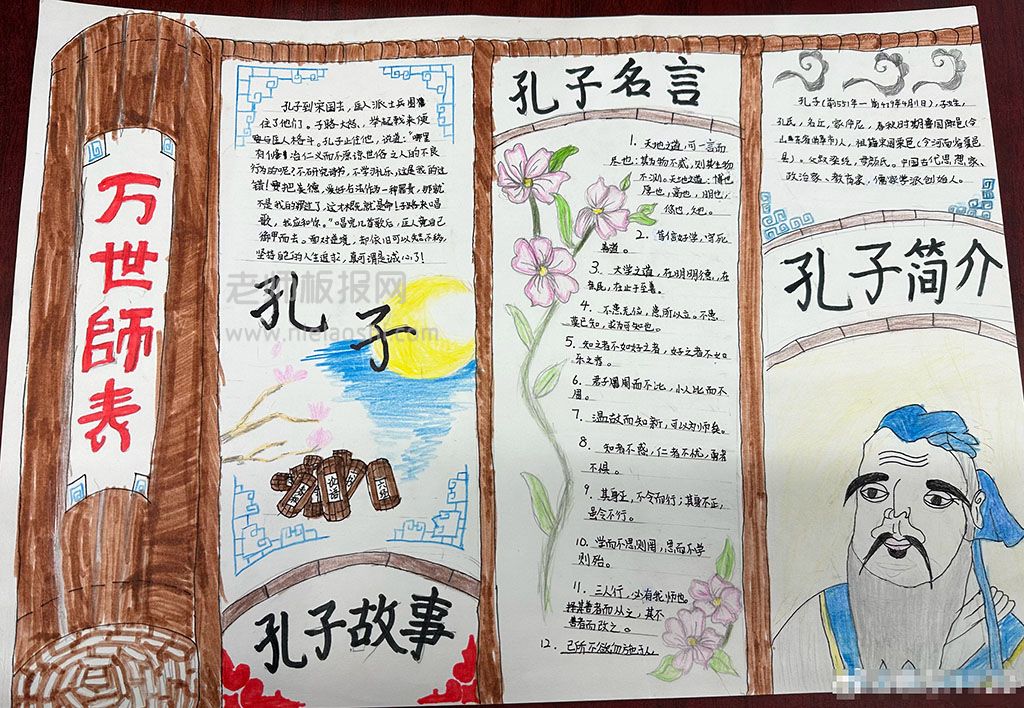 万世師表
孔子到宋国去，匡人派士兵围
住了他们。子路大怒，举起戟来便
要与匡人格斗。孔子止住他，说道："哪里
有修仁义而不原谅世俗之人的不良
行为的呢？不研究诗书，不学习礼乐，这是我的过
错，要把美德、爱好古法作为一种罪责，那就
不是我的罪过了，这大概就是命！子路来唱
歌，我应和你。"唱完几首歌后，匡人竟自己
卸甲而去。面对逆境，却依旧可以矢志不移，
坚持自己的人生追求，真可谓是诚心了！
孔子
老师板报网
论语
孔子故事
孔子名言
1. 天地之道，可一言而
尽也：其为物不贰，则其生物
不测。天地之道：博也，
厚也，高也，明也，
悠也，久也。
2. 笃信好学，守死
善道。
3. 大学之道，在明明德，在
亲民，在止于至善。
4. 不患无位，患所以立。不患
莫已知，求为可知也。
5. 知之者不如好之者，好之者不如
乐之者。
6. 君子周而不比，小人比而不
周。
7. 温故而知新，可以为师矣。
8. 知者不惑，仁者不忧，勇者
不惧。
9. 其身正，不令而行；其身不正，
虽令不行。
10. 学而不思则罔，思而不学
则殆。
11. 三人行，必有我师也。
择其善者而从之，其不
善者而改之。
12. 己所不欲勿施于人
孔子（前551年一前479年4月11日），子姓，
孔氏，名丘，字仲尼，春秋时期鲁国陬邑（今
山东省曲阜市）人，祖籍宋国栗邑（今河南省夏邑
县）。父叔梁纥，母颜氏。中国古代思想家、
政治家、教育家，儒家学派创始人。
孔子简介